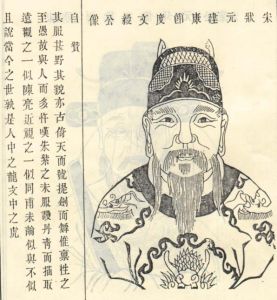 宋狀元建康節度文毅公像
自贊
其服甚野其貌亦古倚天而號提劍而舞惟稟性之
至愚故與人而多忤嘆朱紫之未服謾丹青而描取
遠觀之一似陳亮近視之一似同甫未論似與不似
且說當今之世孰是人中之龍文中之虎